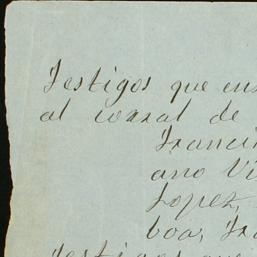 Testigos que ens
al corral de
Franci
ano Vi
Lopez,
boa, Fra
Testigos que